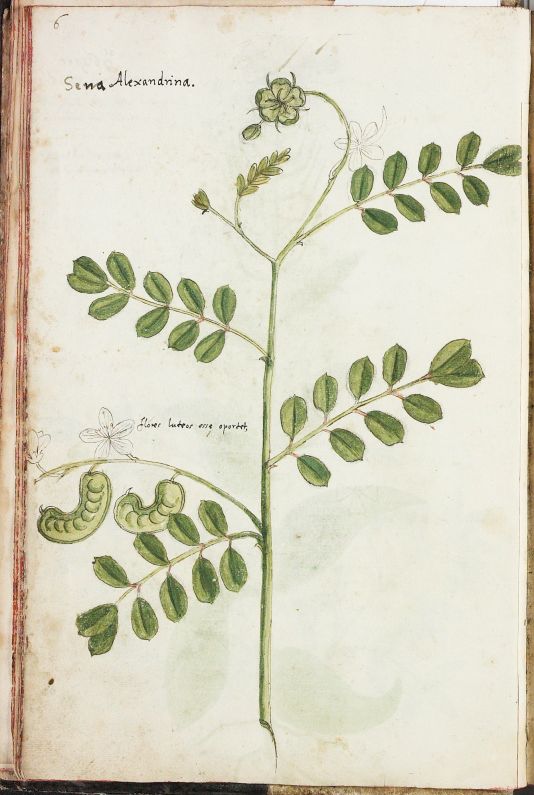 6
Sena Alexandrina.
flores luteos esse oportet